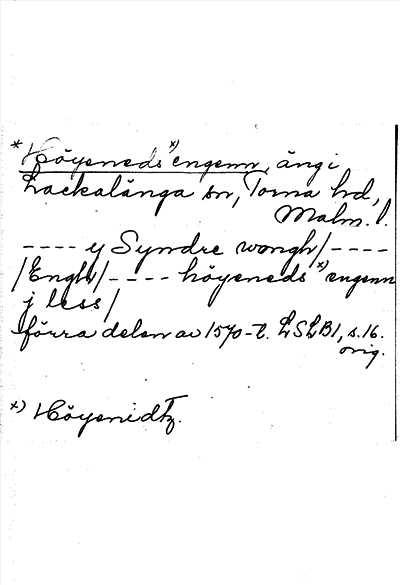 * Höyeneds x) engenn, äng i
Lackalänga sn, Torna hd,
Malm. l.
---- y Syndre wongh/----
/Engh/---- höyeneds x) engenn
j less/
förra delen av 1570-t. LSLB1, s. 16.
orig.
x) Höyenidtz.